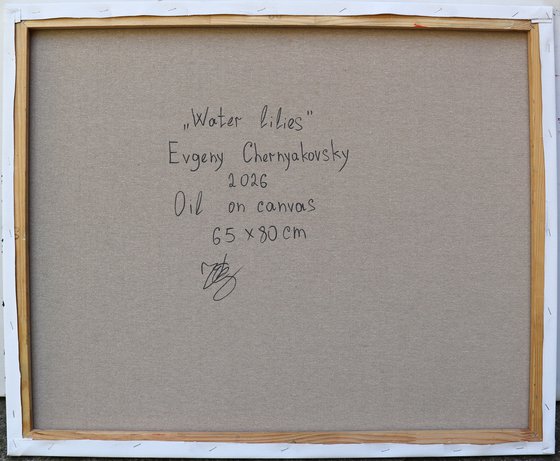 „Water lilies"
Evgeny Chernyakovsky
2026
Oil on canvas
65 x 80 cm